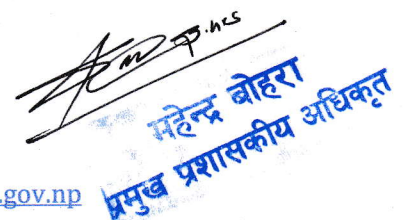 महेन्द्र बोहरा
प्रमुख प्रशासकीय अधिकृत
.gov.np